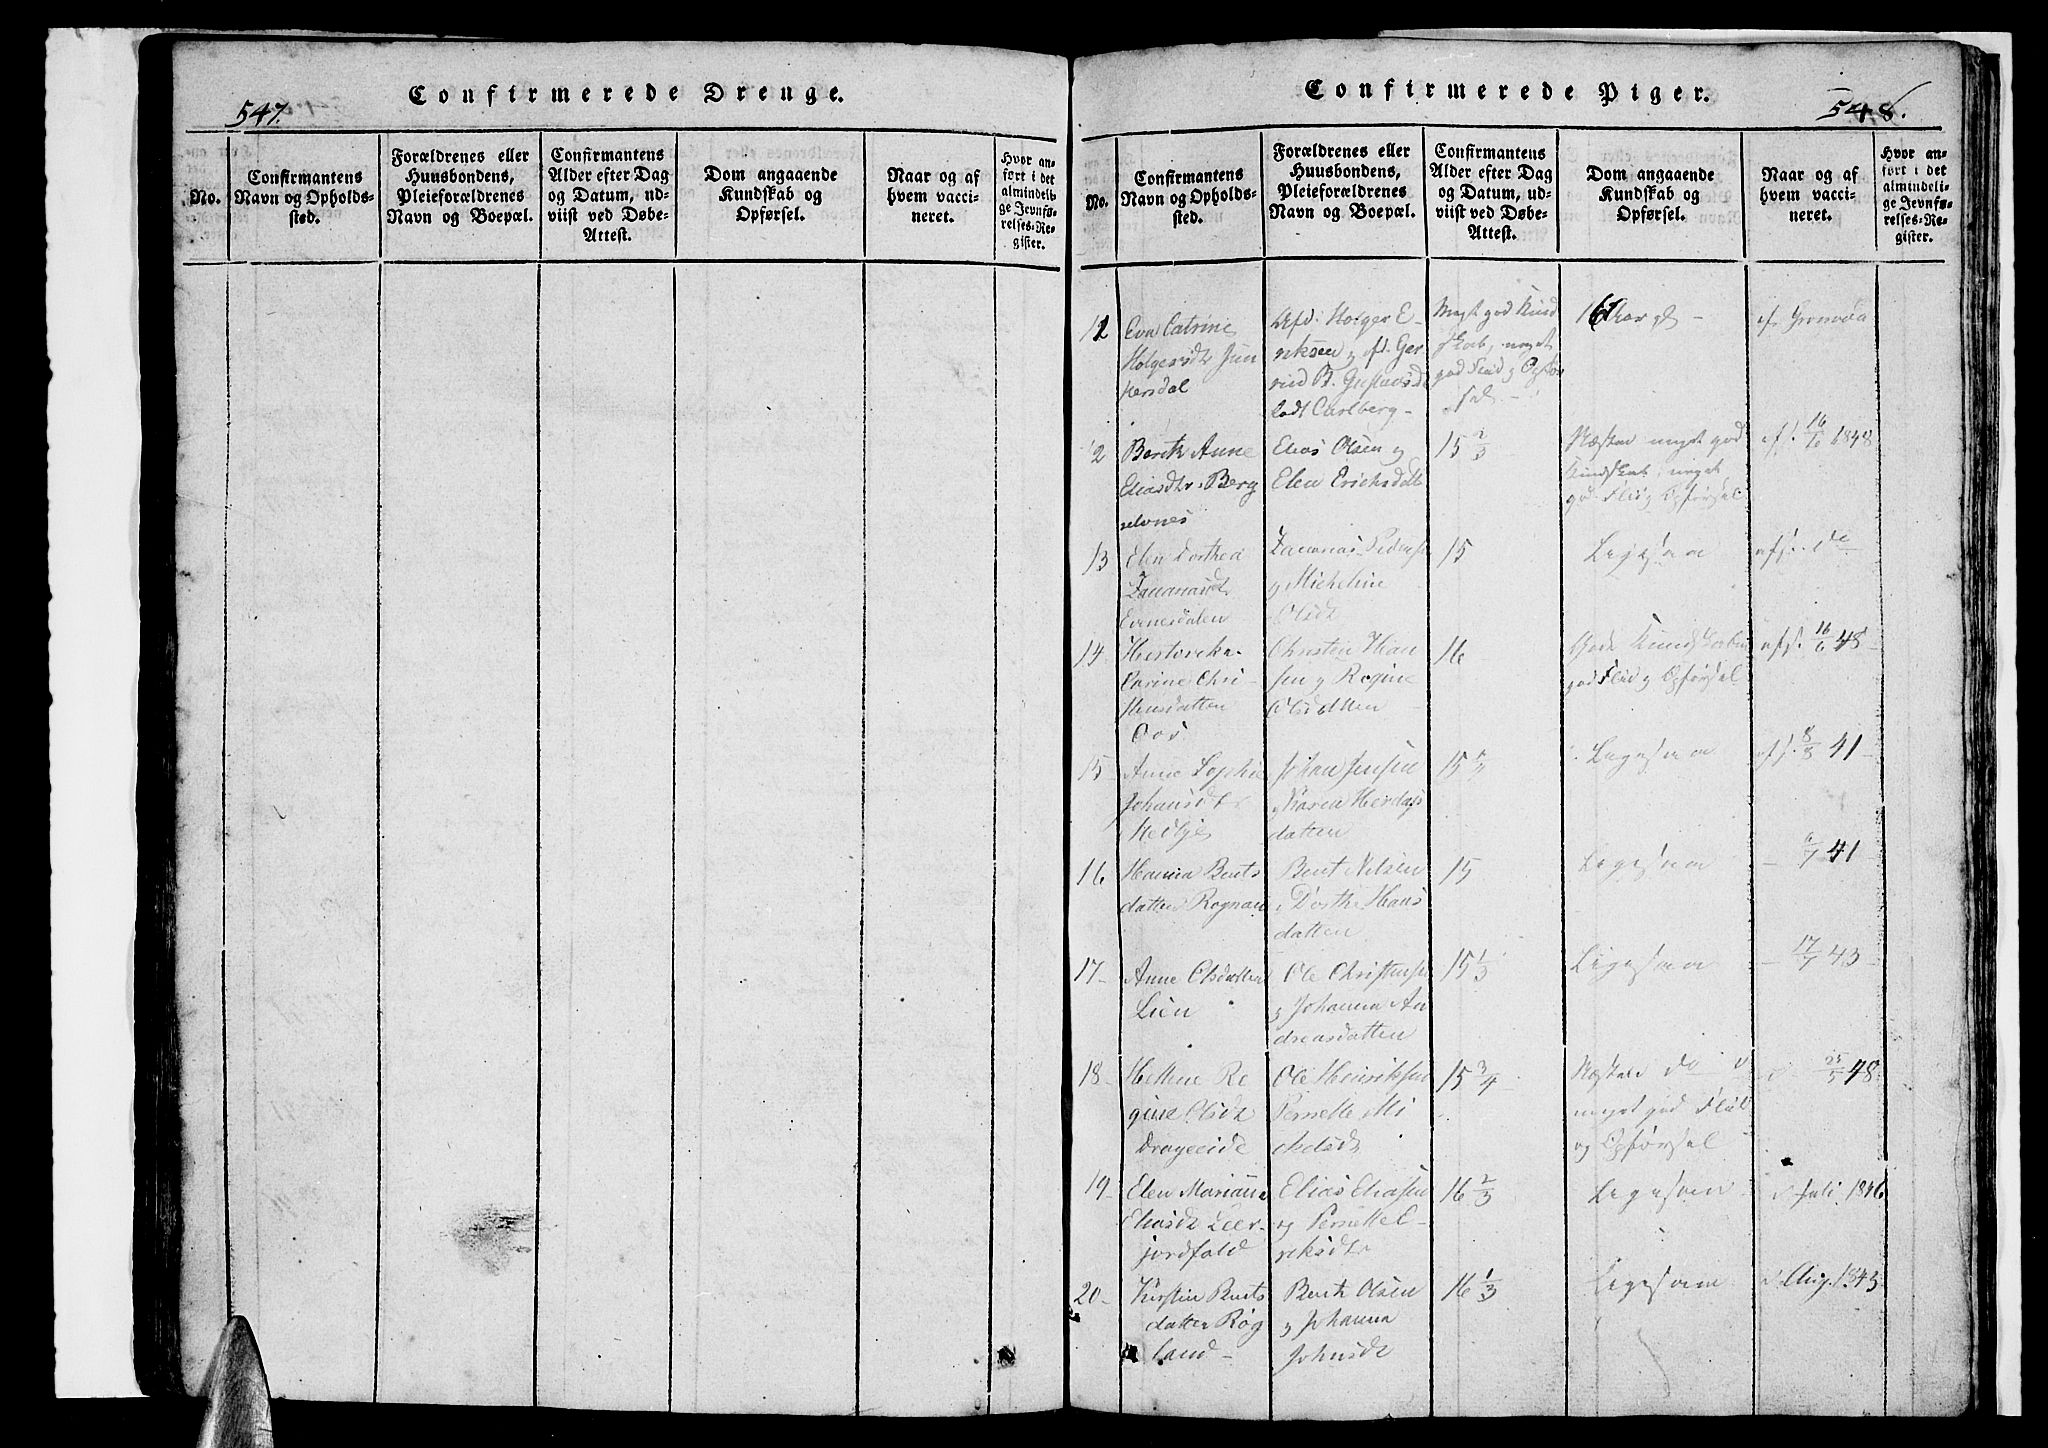 Confirmerede Drenge.
547.
No.
Confirmantens
Navn og Opholds-
sted.
Forældrenes eller
Huusbondens,
Pleieforældrenes
Navn og Boepæl.
Confirmantens
Alder efter Dag
og Datum, ud-
viist ved Døbe-
Attest.
Dom angaaende
Kundskab og
Opførsel.
Naar og af
hvem vacci-
neret.
Hvor an-
ført i det
almindeli-
ge Jevnfø-
relses-Re-
gister.
Confirmerede Piger.
548.
No.
Confirmantens
Navn og Opholds-
sted.
Forældrenes eller
Huusbondens,
Pleieforældrenes
Navn og Boepæl.
Confirmantens
Alder efter Dag
og Datum, ud-
viist ved Døbe-
Attest.
Dom angaaende
Kundskab og
Opførsel.
Naar og af
hvem vacci-
neret.
Hvor an-
ført i det
almindeli-
ge Jevnfø-
relses-Re-
gister.
Eva Catrine
Holgersdtr Jun
kersdal
Afd: Holger E-
riksen og afd. Ger
B. Gustavsd
født Carlberg-
Meget god Kund
skab, meget
god Flid og Opfør
sel. -
16 Aar
af Grønvold
2
Berit Anne
Eliasdtr. Berg
ulvnes
Elias Olsen og
Elen Erichsdtt
15 2/3
Næsten meget god
Kundskab, meget
god Flid og Opførsel
afs. 16/6 1848
13
Elen Dorthea
Zacariasdt
Evenesdalen
Zacarias Peders
og Micheline
Olsdt
15
Ligesaa
afs. do
14
Carine Chri
stensdatter
Christen Han
sen og Regine
Olsdatter
16
Gode Kundskaber
god Flid og Opførsel
afs. 16/6 48
15
Anne Sophie
Johansdtr
Medbye
Johan Jensen
Karen Herdags
datter
15
Ligesaa
afs. 8/8 41
16
Hanna Bents
datter Rognan
Bent Nilsen
Dorthe Hans
datter
15
Ligesaa
41
17-
Anne Olsdatter
Lien
Ole Christensen
og Johanna An
dreasdatter
15 1/3
Ligesaa
- 17/7 43-
18-
Helene Re
gine Olsdt
Drageeide
Ole Henriksen
Pernelle Mi
ckelsdt
15 3/4
Næsten do
meget god Flid
og Opførsel
25/5 48.
19-
Elen Marianna
Eliasdt Leer-
jordfald
Elias Eliasen
og Pernelle E-
riksdtr
16 2/3
Ligesom
Juli 1846
20-
Kirstin Bents
datter Røg
land-
Bent Olsen
og Johanna
Johnsdt
16 1/3
Ligesom
Aug. 1843